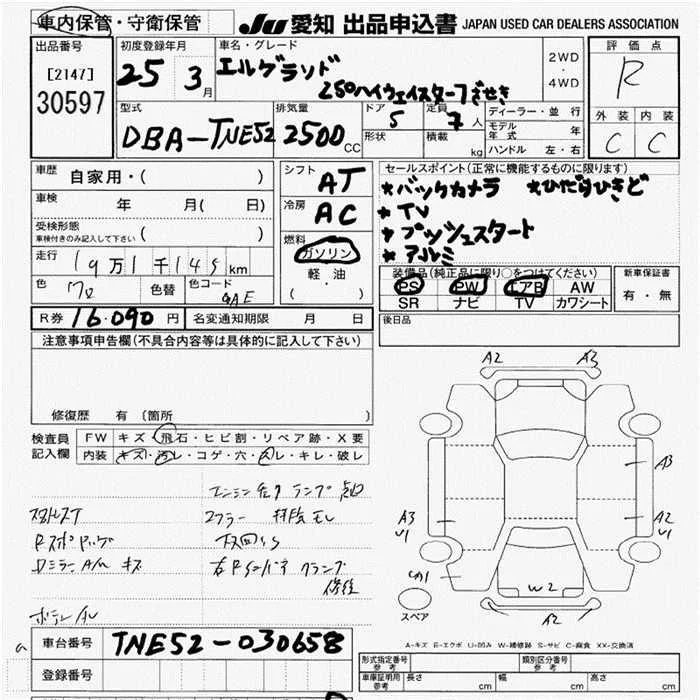 車内保管・守衛保管
JU 愛知 出品申込書 JAPAN USED CAR DEALERS ASSOCIATION
出品番号
[2147]
30597
初度登録年月
25 3 月
車名・グレード
エルグランド
250ハイウェイスター7きせき
2WD
・
4WD
評価点
R
外装 内装
C C
型式
DBA-TNE52
排気量
2500 CC
ドア 5
形状
定員 7 人
積載 kg
ディーラー・並行
モデル年式 年
ハンドル 左・右
車歴 自家用・( )
車検 年 月( 日)
受検形態
車検付きのみ記入して下さい ( )
走行 19万1千145 km
色 クロ 色替 色コード GAE
シフト AT
冷房 AC
燃料
ガソリン
軽・油
( ・ )
セールスポイント(正常に機能するものに限ります)
*バックカメラ *ひだりひきど
*TV
*プッシュスタート
*アルミ
装備品(純正品に限り○をつけてください)
PS PW エアB AW
SR ナビ TV カワシート
新車保証書
有・無
R券 16.090 円 名変通知期限 月 日
後日品
注意事項申告欄(不具合内容等は具体的に記入して下さい)
修復歴 有 〔箇所 〕
検査員
記入欄
FW キズ・飛石・ヒビ割・リペア跡・X要
内装 キズ・汚レ・コゲ・穴・スレ・キレ・破レ
エンジン警告ランプ点灯
マフラー 排気モレ
キズ
修後
A2 A3
A3
A3
U1
A2
U1
W2
A2
スペア
A-キズ E-エクボ U-凹み W-補修跡 S-サビ C-腐食 XX-交換済
車台番号 TNE52-030658
登録番号
形式指定番号
参考
類別区分番号
参考
車庫証明用
参考
長さ cm 幅 cm 高さ cm